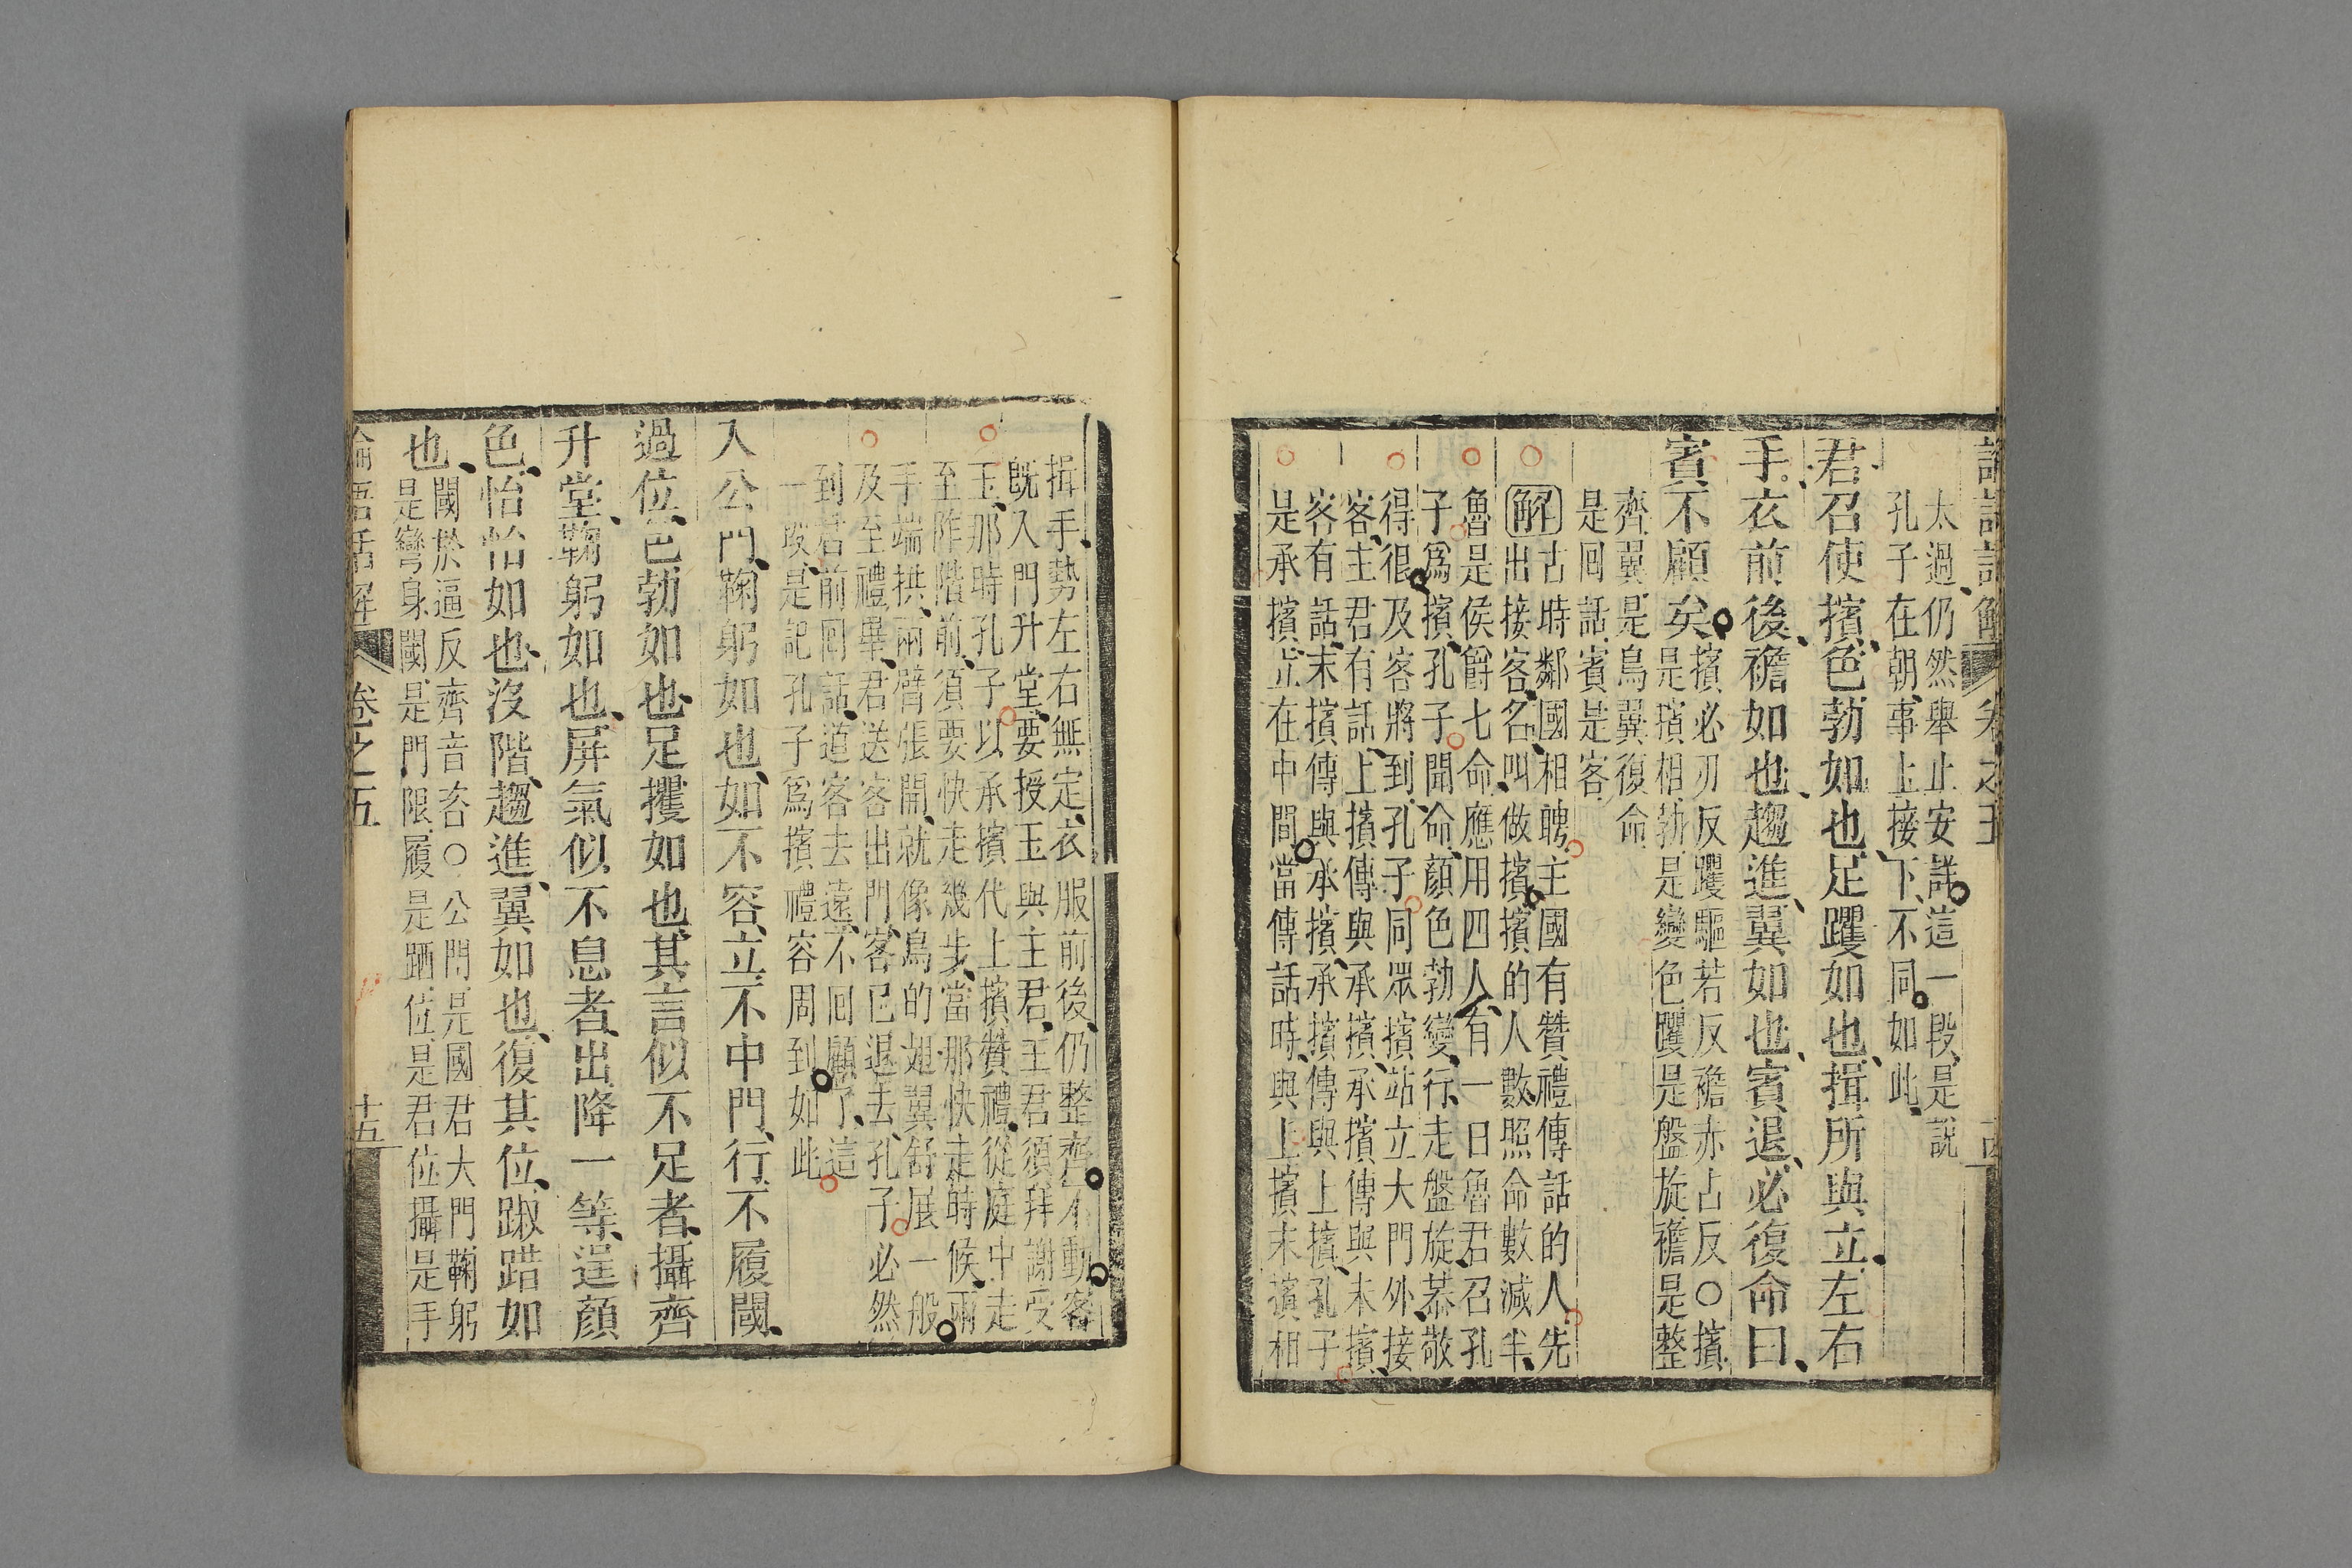 太過、仍然舉止安詳、這一段、是說
孔子在朝、事上接下、不同如此、
君召使擯、色勃如也、足躩如也、揖所與立、左右
手、衣前後、襜如也、趨進、翼如也、賓退、必復命曰、
賓不顧矣、
擯必刃反躩驅若反襜赤占反○擯
是擯相、勃是變色躩是盤旋襜是整
齊翼是鳥翼復命
是回話賓是客
解古時鄰國相聘、主國有贊禮傳話的人、先
出接客、名叫做擯、擯的人數、照命數減半、
魯是侯爵七命、應用四人、有一日魯君召孔
子爲擯、孔子聞命、顏色勃變、行走盤旋、恭敬
得很、及客將到、孔子同眾擯站立大門外、接
客、主君有話、上擯傳與承擯、承擯傳與末擯、
客有話、末擯傳與承擯、承擯傳與上擯、孔子
是承擯、立在中間、當傳話時、與上擯末擯相
揖手、勢左右無定、衣服前後、仍整齊不動、客
既入門升堂、要授玉與主君、主君須拜謝受
玉、那時孔子以承擯代上擯贊禮、從庭中走
至阼階前、須要快走幾步、當那快走時候、兩
手端拱、兩臂張開、就像鳥的翅翼舒展一般
及至禮畢、君送客出門、客已退去、孔子必然
到君前回話、道客去遠、不回顧了、這
一段、是記孔子爲擯禮容周到如此
入公門、鞠躬如也、如不容、立不中門、行不履閾、
過位、色勃如也、足躩如也、其言似不足者、攝齊
升堂、鞠躬如也、屏氣似不息者、出降一等、逞顏
色、怡怡如也、沒階、趨進、翼如也、復其位、踧踖如
也、
閾於逼反齊音咨○公門是國君大門鞠躬
是彎身閾是門限履是跴位是君位攝是手
論語話解 卷之五 十五